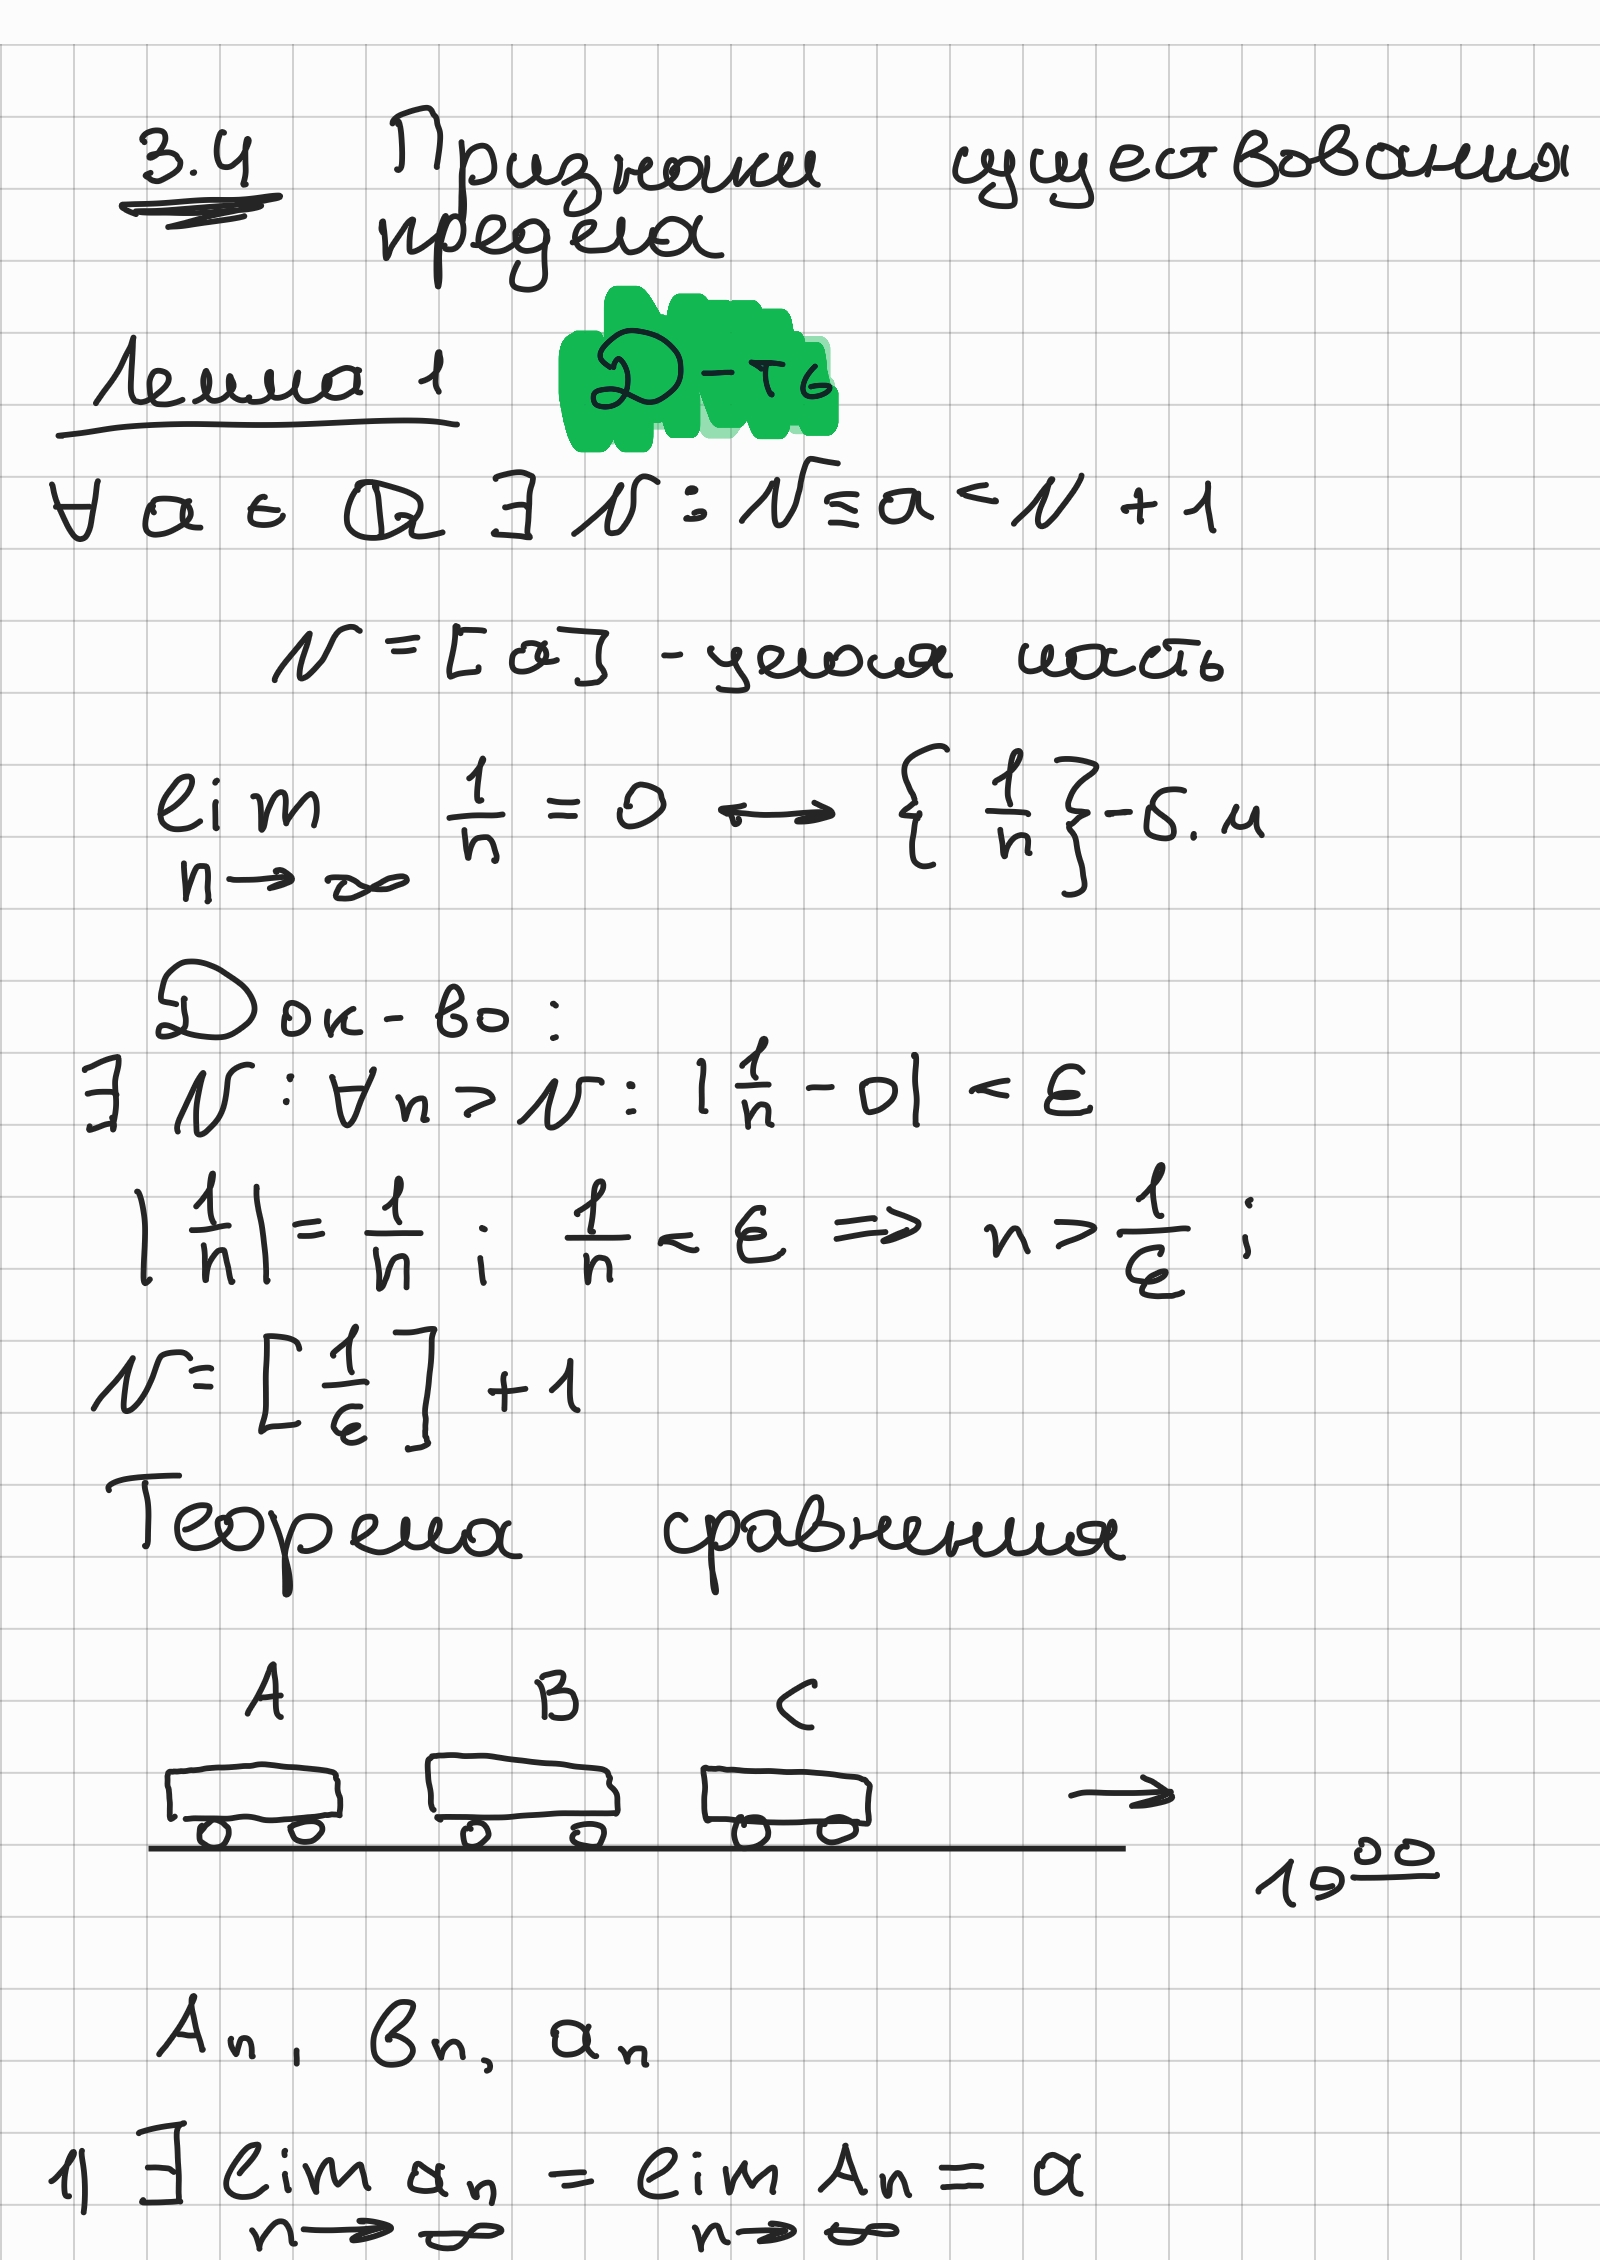 3.4 Признаки существования
предела
Лемма 1 Д-ть
∀ a ∈ Q ∃ N : N ≤ a < N + 1
N = [a] - целая часть
lim 1/n = 0 ⟷ { 1/n } - б. м
n → ∞
Док-во :
∃ N : ∀ n > N : | 1/n - 0 | < ε
| 1/n | = 1/n ; 1/n < ε ⇒ n > 1/ε ;
N = [ 1/ε ] + 1
Теорема сравнения
A B C
→
10 00
An, bn, an
1) ∃ lim an = lim An = a
n → ∞ n → ∞